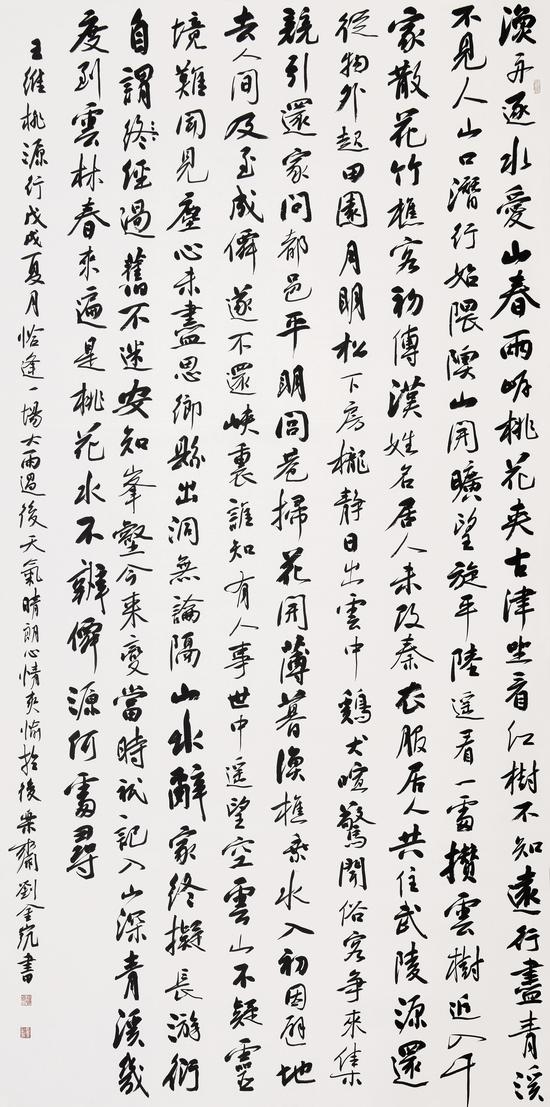 漁舟逐水愛山春兩岸桃花夾古津坐看紅樹不知遠行盡青溪
不見人山口潛行始隈隩山開曠望旋平陸遙看一處攢雲樹近入千
家散花竹樵客初傳漢姓名居人未改秦衣服居人共住武陵源還
從物外起田園月明松下房櫳靜日出雲中鷄犬喧驚聞俗客爭來集
競引還家問都邑平明閭巷掃花開薄暮漁樵乘水入初因避地
去人間及至成僊遂不還峽裏誰知有人事世中遙望空雲山不疑靈
境難聞見塵心未盡思鄉縣出洞無論隔山水辭家終擬長游衍
自謂終經過舊不迷安知峯壑今來變當時衹記入山深青溪幾
度到雲林春來遍是桃花水不辨僊源何處尋
王維桃源行戊戌夏月恰逢一場大雨過後天氣晴朗心情爽愉於後樂齋劉金書